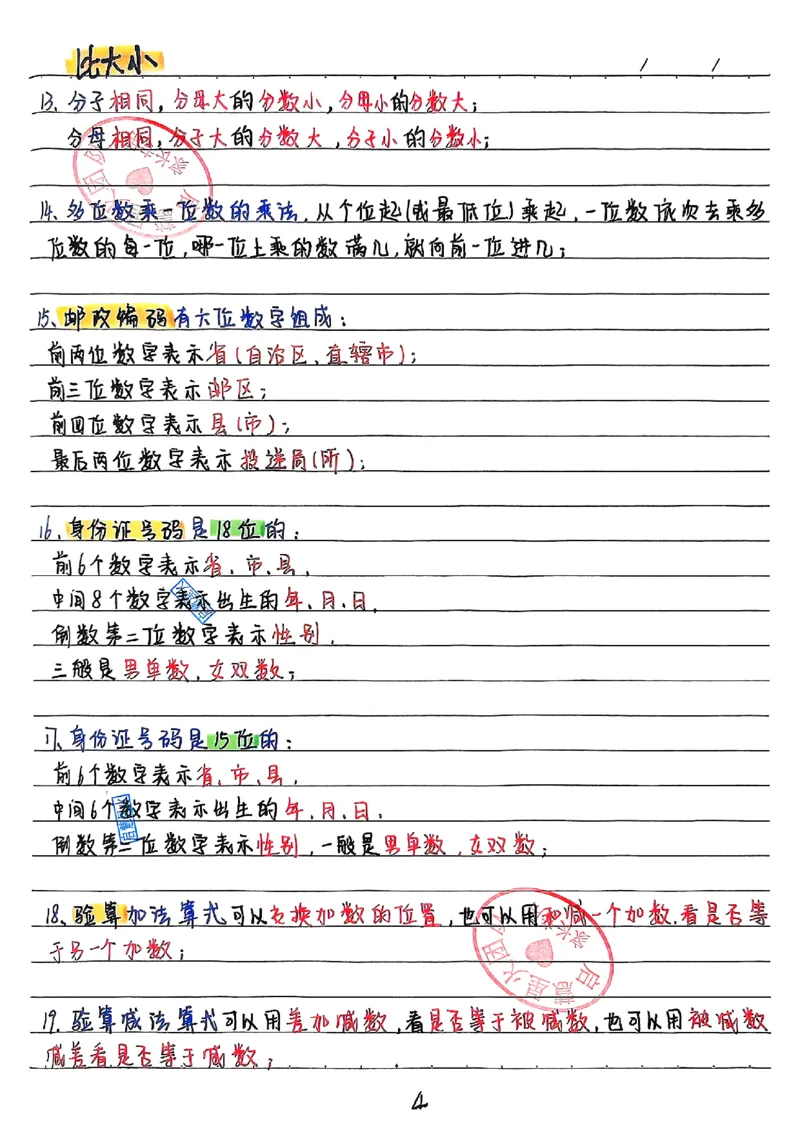 比大小
/ /
13、分子相同，分母大的分数小，分母小的分数大；
分母相同，分子大的分数大，分子小的分数小；
14、多位数乘一位数的乘法，从个位起(或最低位)乘起，一位数依次去乘多
位数的每一位，哪一位上乘的数满几，就向前一位进几；
15、邮政编码有六位数字组成：
前两位数字表示省(自治区、直辖市)；
前三位数字表示邮区；
前四位数字表示县(市)；
最后两位数字表示投递局(所)；
16、身份证号码是18位的：
前6个数字表示省、市、县，
中间8个数字表示出生的年、月、日，
倒数第二位数字表示性别，
三般是男单数，女双数；
17、身份证号码是15位的：
前6个数字表示省、市、县，
中间6个数字表示出生的年、月、日，
倒数第二位数字表示性别，一般是男单数，女双数；
18、验算加法算式可以交换加数的位置，也可以用和减一个加数，看是否等
于另一个加数；
19、验算减法算式可以用差加减数，看是否等于被减数，也可以用被减数
减差看是否等于减数；
4